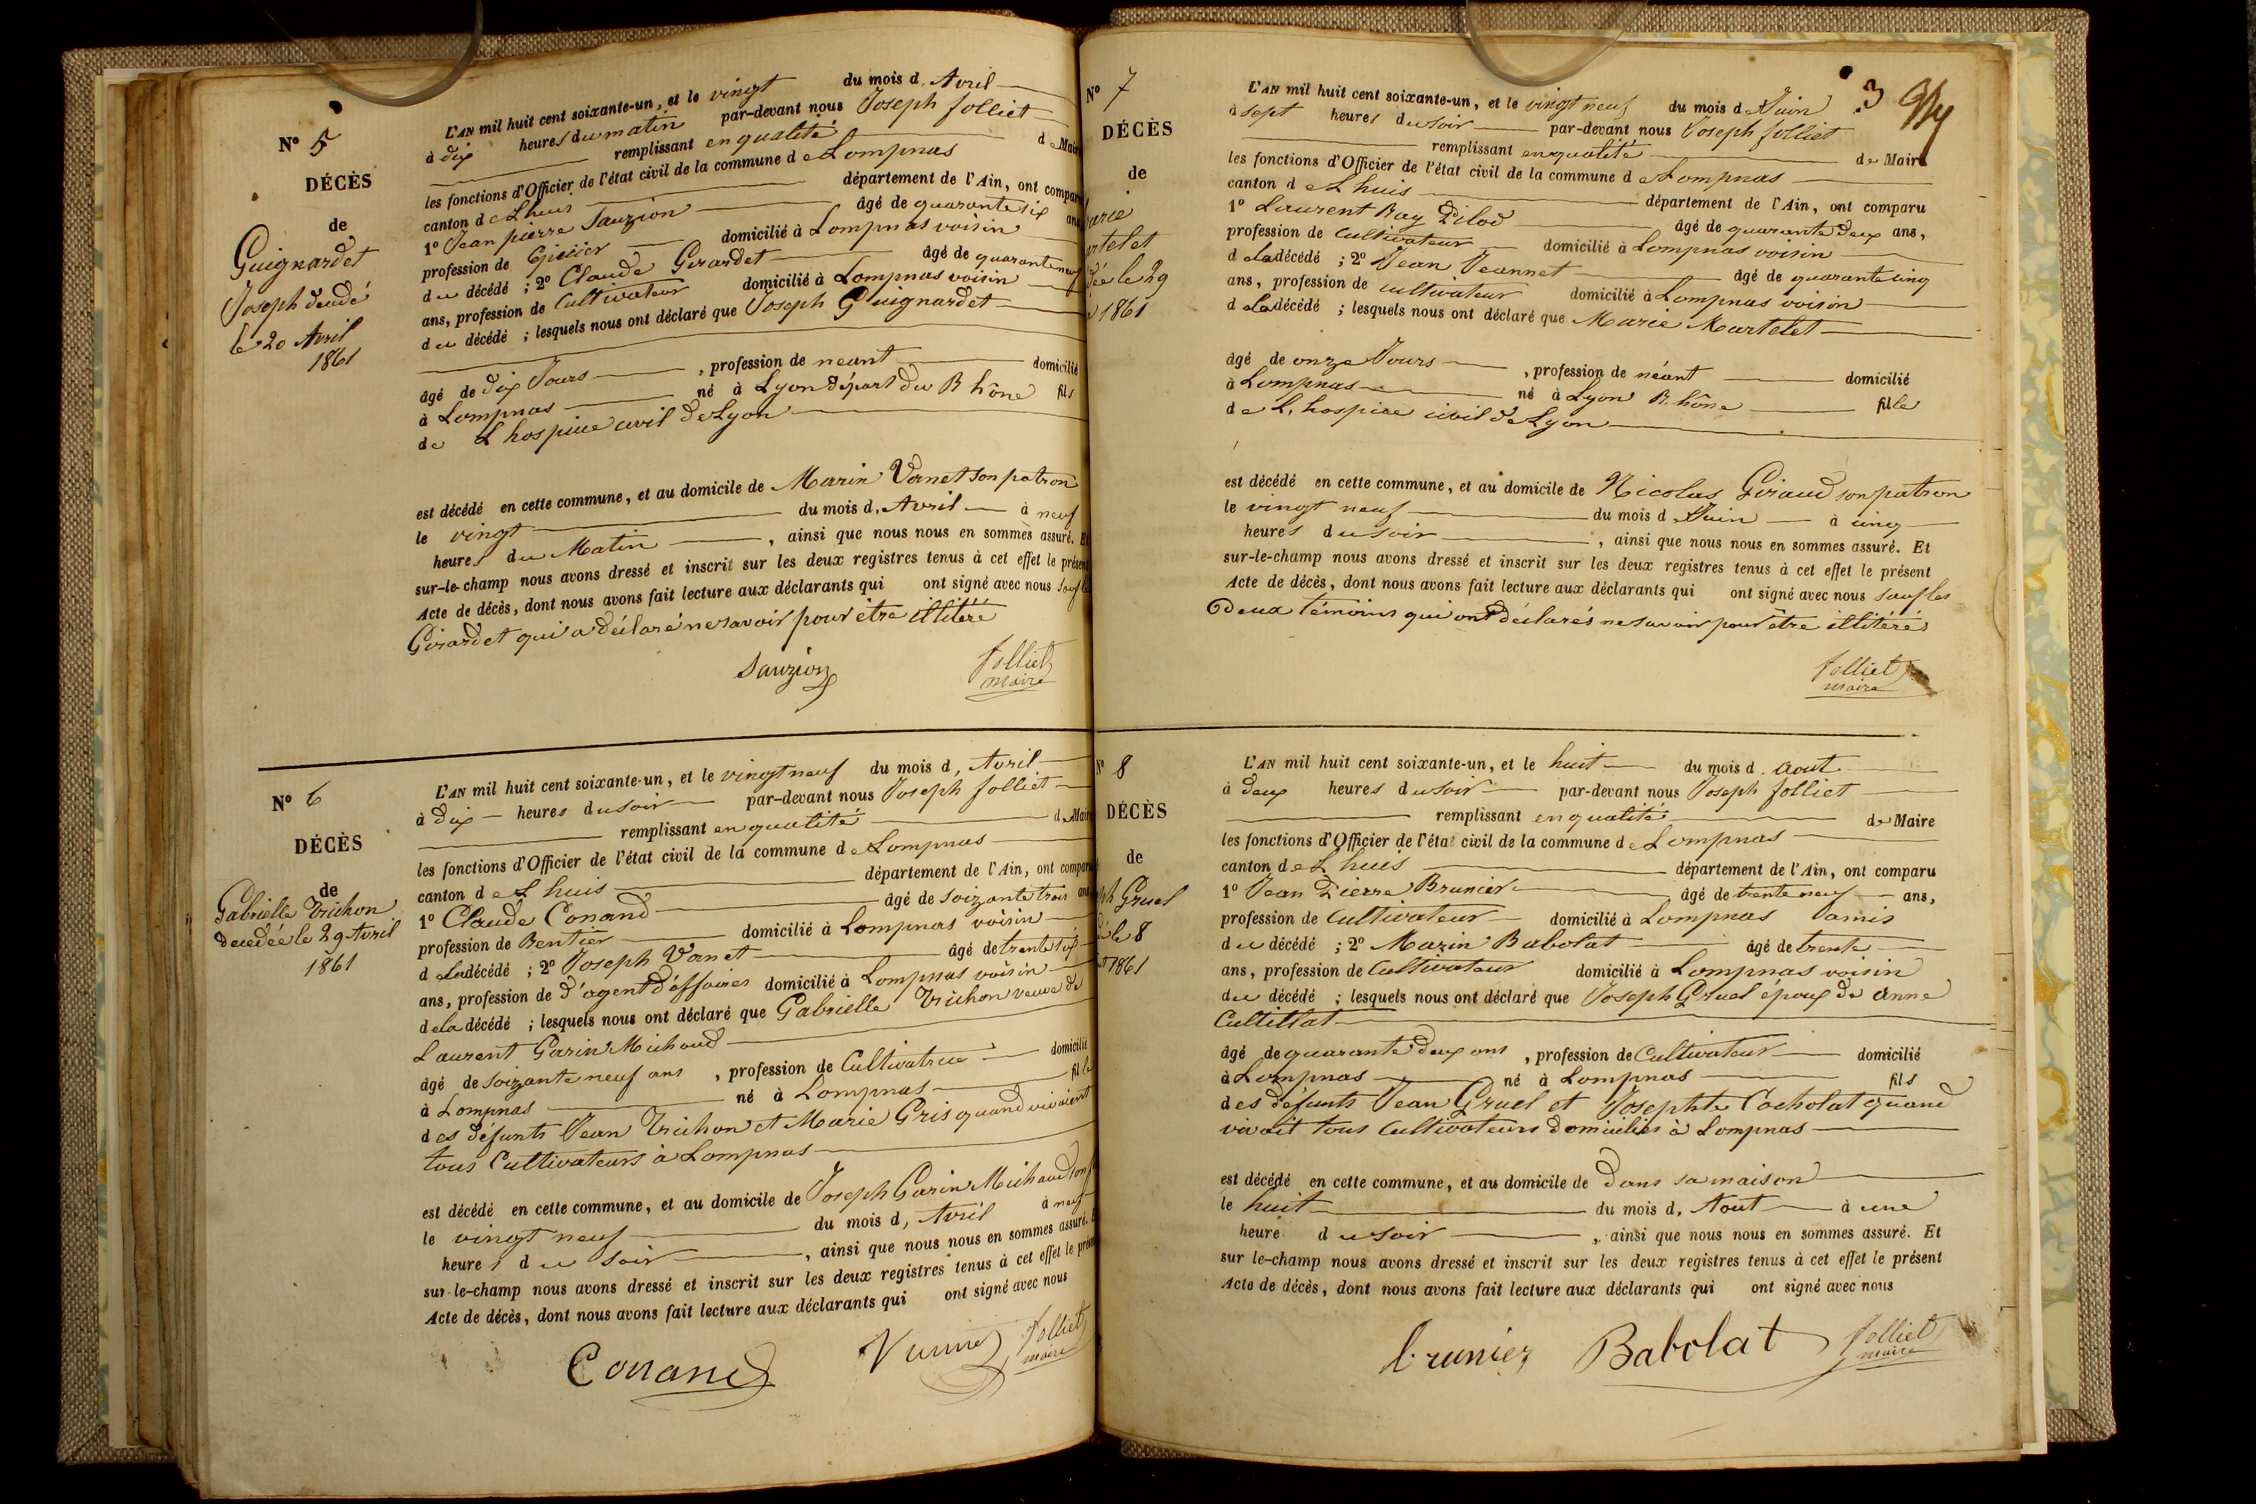 N° 5
DÉCÈS
de
Guignardet
Joseph décédé
le 20 Avril
1861
L'AN mil huit cent soixante-un, et le vingt du mois d, Avril
à dix heures du matin par-devant nous Joseph folliet
remplissant en qualité de Maire
les fonctions d'Officier de l'état civil de la commune de Lompnas
canton de Lhuis département de l'Ain, ont comparu
1° Jean pierre Sauzion âgé de quarante six ans
profession de Epicier domicilié à Lompnas voisin
du décédé ; 2° Claude Girardet âgé de quarante neuf
ans, profession de Cultivateur domicilié à Lompnas voisin
du décédé ; lesquels nous ont déclaré que Joseph Guignardet
âgé de dix Jours , profession de neant domicilié
à Lompnas né à Lyon Départ du Rhône fils
de L hospice civil de Lyon
est décédé en cette commune, et au domicile de Marin Vernet son patron
le vingt du mois d, Avril à neuf
heures du Matin , ainsi que nous nous en sommes assuré. Et
sur-le-champ nous avons dressé et inscrit sur les deux registres tenus à cet effet le présent
Acte de décès, dont nous avons fait lecture aux déclarants qui ont signé avec nous sauf le
Girardet qui a déclaré ne savoir pour être illitéré
Sauzion
folliet
maire
N° 6
DÉCÈS
de
Gabrielle Trichon
décédée le 29 Avril
1861
L'AN mil huit cent soixante-un, et le vingt neuf du mois d, Avril
à dix heures du soir par-devant nous Joseph folliet
remplissant en qualité de Maire
les fonctions d'Officier de l'état civil de la commune de Lompnas
canton de Lhuis département de l'Ain, ont comparu
1° Claude Conand âgé de soizante trois ans
profession de Rentier domicilié à Lompnas voisin
de la décédé ; 2° Joseph Vernet âgé de trente six
ans, profession de d'agent d'affaires domicilié à Lompnas voisin
de la décédé ; lesquels nous ont déclaré que Gabrielle Trichon veuve de
Laurent Garin Michaud
âgé de soizante neuf ans , profession de Cultivatrice domicilié
à Lompnas né à Lompnas fille
des défunts Jean Trichon et Marie Gris quand vivaient
tous Cultivateurs à Lompnas
est décédé en cette commune, et au domicile de Joseph Garin Michaud son
le vingt neuf du mois d, Avril à neuf
heures du soir , ainsi que nous nous en sommes assuré. Et
sur-le-champ nous avons dressé et inscrit sur les deux registres tenus à cet effet le présent
Acte de décès, dont nous avons fait lecture aux déclarants qui ont signé avec nous
Conand
folliet
maire
3
N° 7
DÉCÈS
de
1861
L'AN mil huit cent soixante-un, et le vingt neuf du mois de Juin
à sept heures du soir par-devant nous Joseph folliet
remplissant en qualité de Maire
les fonctions d'Officier de l'état civil de la commune de Lompnas
canton de Lhuis département de l'Ain, ont comparu
1° Laurent Ray Pilod âgé de quarante deux ans,
profession de Cultivateur domicilié à Lompnas voisin
de la décédé ; 2° Jean Jeannet âgé de quarante cinq
ans, profession de cultivateur domicilié à Lompnas voisin
de la décédé ; lesquels nous ont déclaré que Marie Martelet
âgé de onze Jours , profession de néant domicilié
à Lompnas né à Lyon Rhône fille
de L, hospice civil de Lyon
est décédé en cette commune, et au domicile de Nicolas Giraud son patron
le vingt neuf du mois de Juin à cinq
heures du soir , ainsi que nous nous en sommes assuré. Et
sur-le-champ nous avons dressé et inscrit sur les deux registres tenus à cet effet le présent
Acte de décès, dont nous avons fait lecture aux déclarants qui ont signé avec nous sauf les
Deux témoins qui ont déclarés ne savoir pour être illitérés
folliet
maire
N° 8
DÉCÈS
de
Gruel
le 8
1861
L'AN mil huit cent soixante-un, et le huit du mois d. aout
à deux heures du soir par-devant nous Joseph folliet
remplissant en qualité de Maire
les fonctions d'Officier de l'état civil de la commune de Lompnas
canton de Lhuis département de l'Ain, ont comparu
1° Jean Pierre Brunier âgé de trente neuf ans,
profession de Cultivateur domicilié à Lompnas amis
du décédé ; 2° Marin Babolat âgé de trente
ans, profession de Cultivateur domicilié à Lompnas voisin
du décédé ; lesquels nous ont déclaré que Joseph Gruel époux de Anne
Cultillat
âgé de quarante deux ans , profession de Cultivateur domicilié
à Lompnas né à Lompnas fils
des défunts Jean Gruel et Josephte Cocholat quand
vivait tous Cultivateurs domiciliés à Lompnas
est décédé en cette commune, et au domicile de Dans sa maison
le huit du mois d, Aout à une
heure du soir , ainsi que nous nous en sommes assuré. Et
sur le-champ nous avons dressé et inscrit sur les deux registres tenus à cet effet le présent
Acte de décès, dont nous avons fait lecture aux déclarants qui ont signé avec nous
brunier
Babolat
folliet
maire